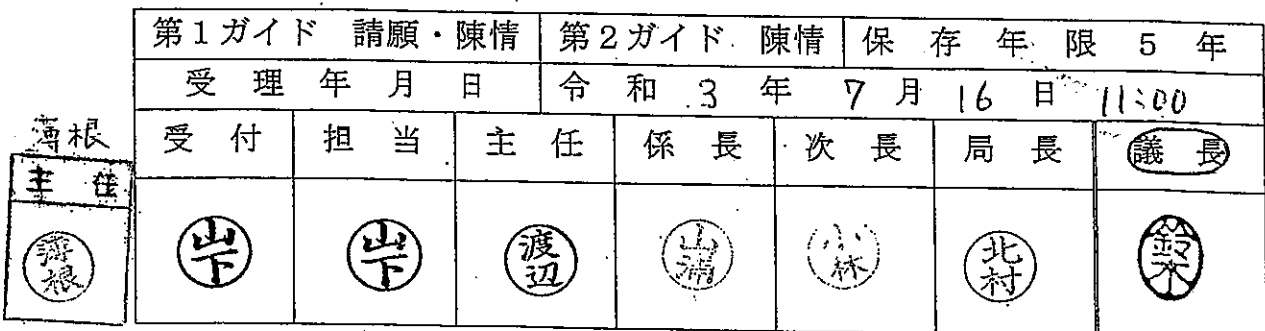 第1ガイド 請願・陳情 第2ガイド 陳情 保存年限5年
受理年月日 令和3年7月16日 11:00
薄根
主任 受付 担当 主任 係長 次長 局長 議長
薄根 山下 山下 渡辺 山浦 小林 北村 鈴木